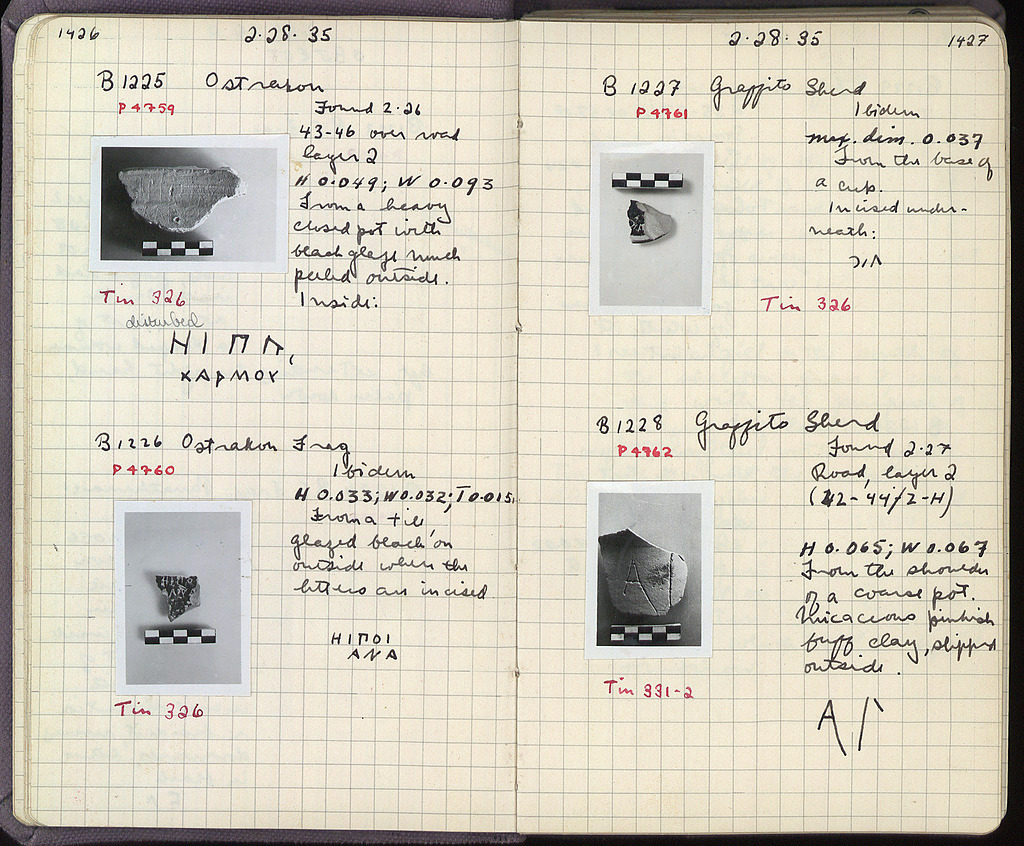 1426
2·28·35
B 1225 Ostrakon
P 4759
Found 2·26
43-46 over road
layer 2
H 0.049; W 0.093
From a heavy
closed pot with
black glaze much
peeled outside.
Inside:
Tin 326
disturbed
ΗΙΠΠ
ΧΑΡΜΟΥ
B 1226 Ostrakon Frag
P 4760
Ibidem
H 0.033; W 0.032; T 0.015
From a tile
glazed black on
outside where the
letters are incised
ΗΙΠΟΙ
ΑΝΑ
Tin 326
2·28·35
1427
B 1227 Graffito Sherd
P 4761
Ibidem
max. dim. 0.037
From the base of
a cup.
Incised under-
neath:
Tin 326
B 1228 Graffito Sherd
P 4762
Found 2·27
Road, layer 2
(42-44/Z-H)
H 0.065; W 0.067
From the shoulder
of a coarse pot.
Micaceous pinkish
buff clay, slipped
outside.
Tin 331-2